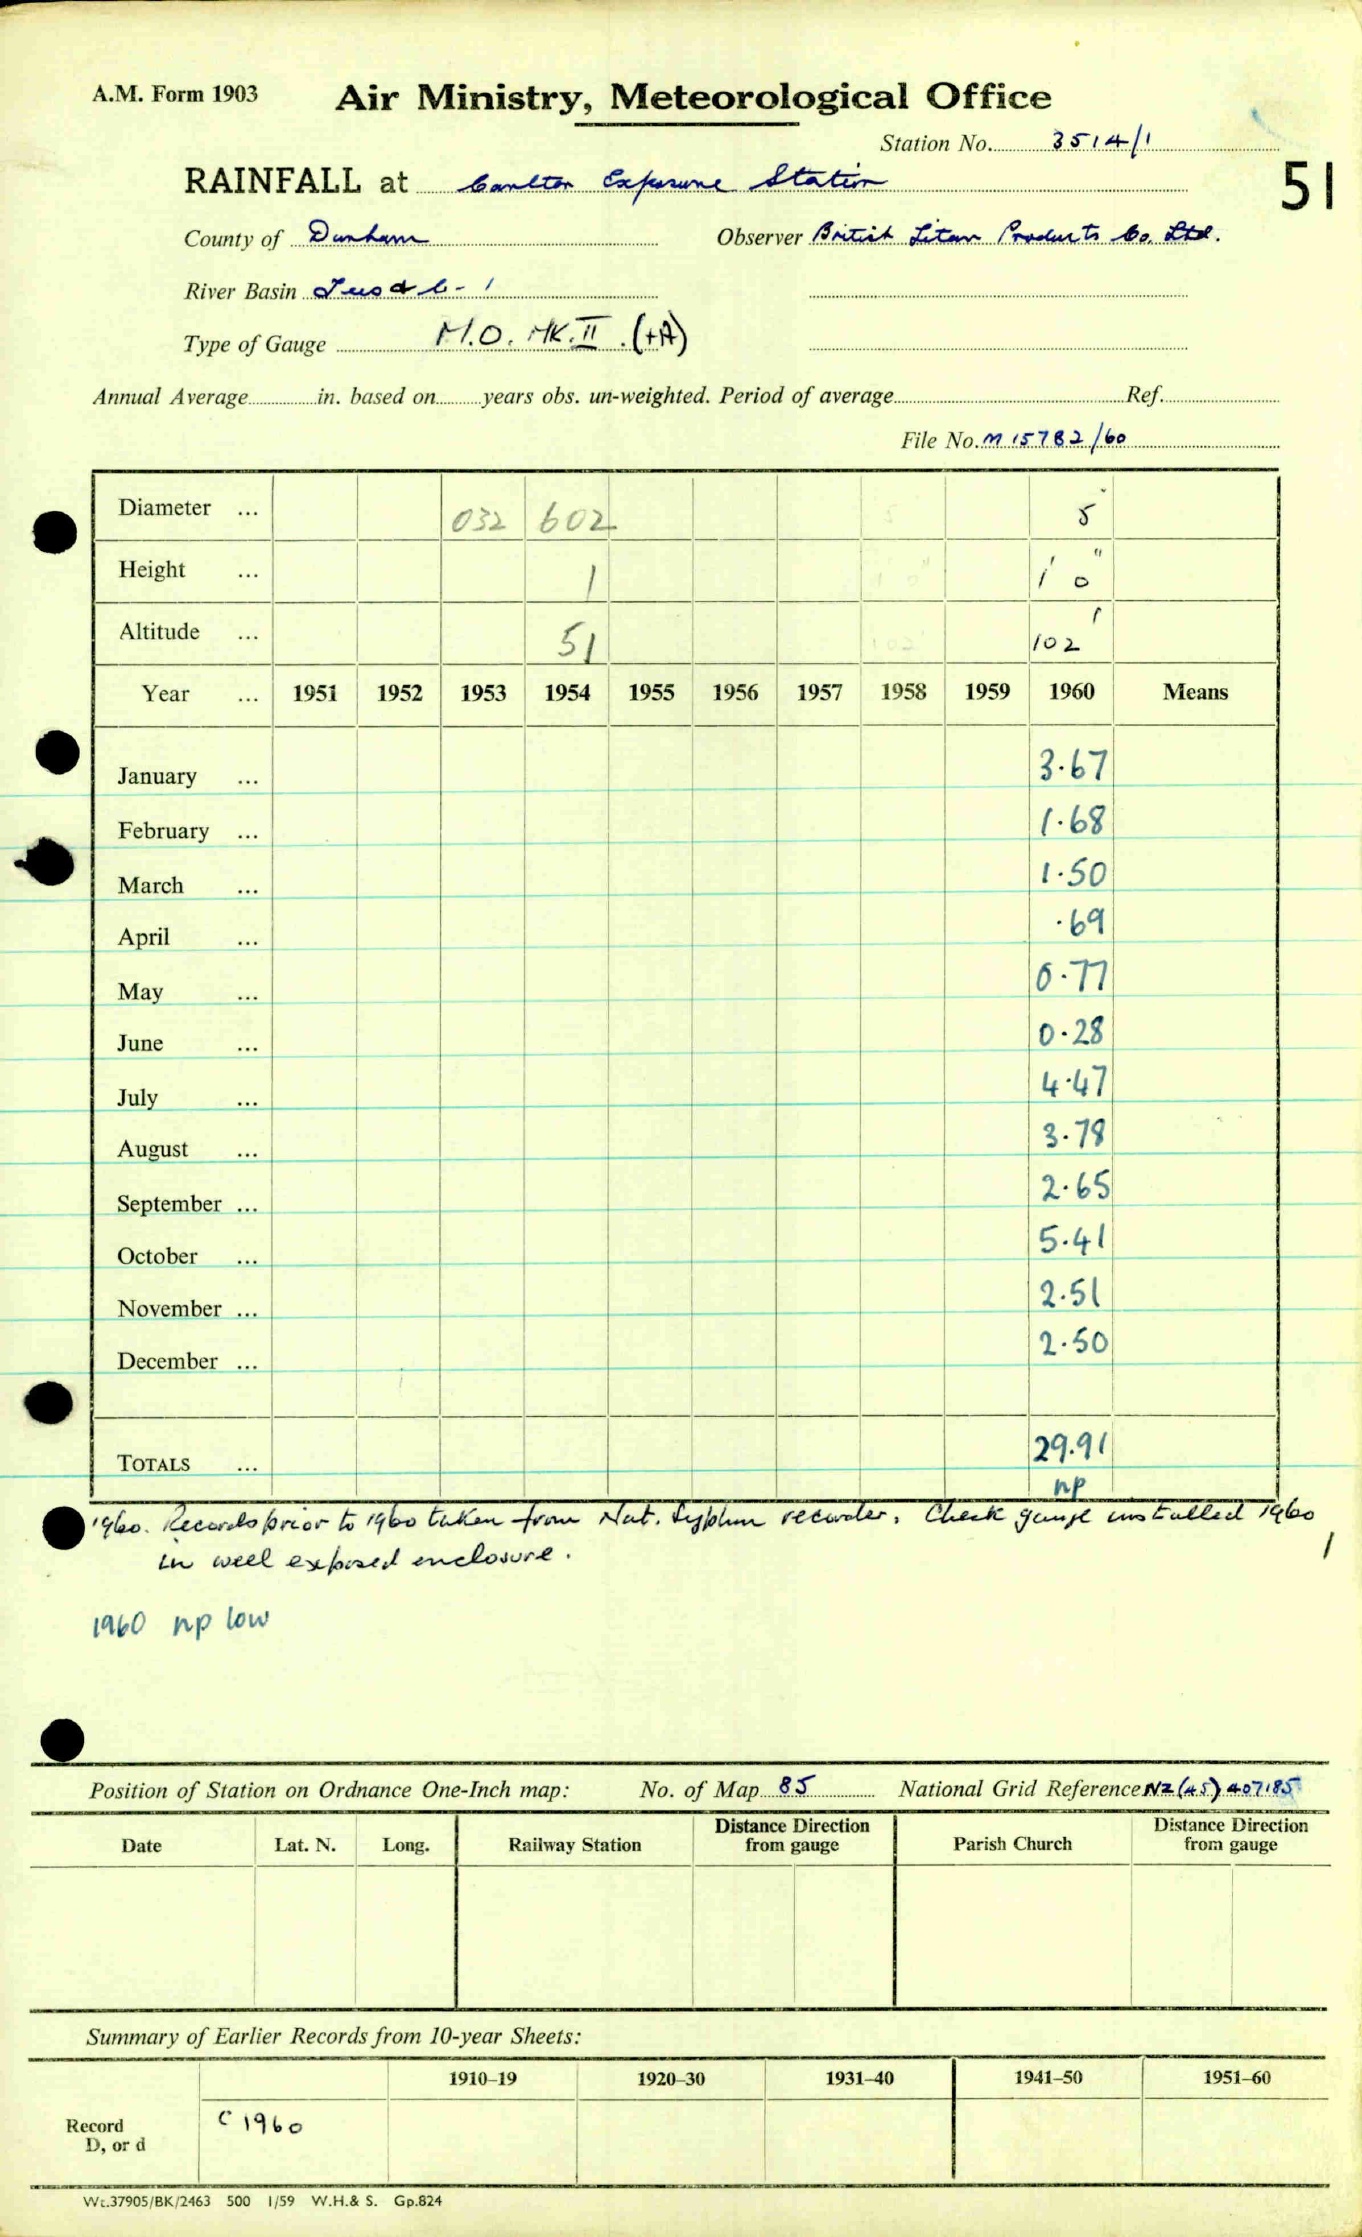 A.M. Form 1903 Air Ministry, Meteorological Office
Station No. 3514/1
51
RAINFALL at Carlton Exposure Station
County of Durham Observer British Titan Products Co. Ltd.
River Basin Tees & C- 1
Type of Gauge M.O. MK.II. (+A)
Annual Average in. based on years obs. un-weighted. Period of average Ref.
File No. M 15782/60
Diameter ... 032 602 5"
Height ... 1 1' 0"
Altitude ... 51 102'
Year ... 1951 1952 1953 1954 1955 1956 1957 1958 1959 1960 Means
January ... 3.67
February ... 1.68
March ... 1.50
April ... .69
May ... 0.77
June ... 0.28
July ... 4.47
August ... 3.78
September ... 2.65
October ... 5.41
November ... 2.51
December ... 2.50
TOTALS ... 29.91
np
1960. Records prior to 1960 taken from Nat. Syphon recorder. Check gauge installed 1960
in well exposed enclosure.
1
1960 np low
Position of Station on Ordnance One-Inch map: No. of Map 85 National Grid Reference NZ(45)407185
Date Lat. N. Long. Railway Station Distance Direction from gauge Parish Church Distance Direction from gauge
Summary of Earlier Records from 10-year Sheets:
1910–19 1920–30 1931–40 1941–50 1951–60
Record
D, or d
C 1960
Wt.37905/BK/2463 500 1/59 W.H.& S. Gp.824